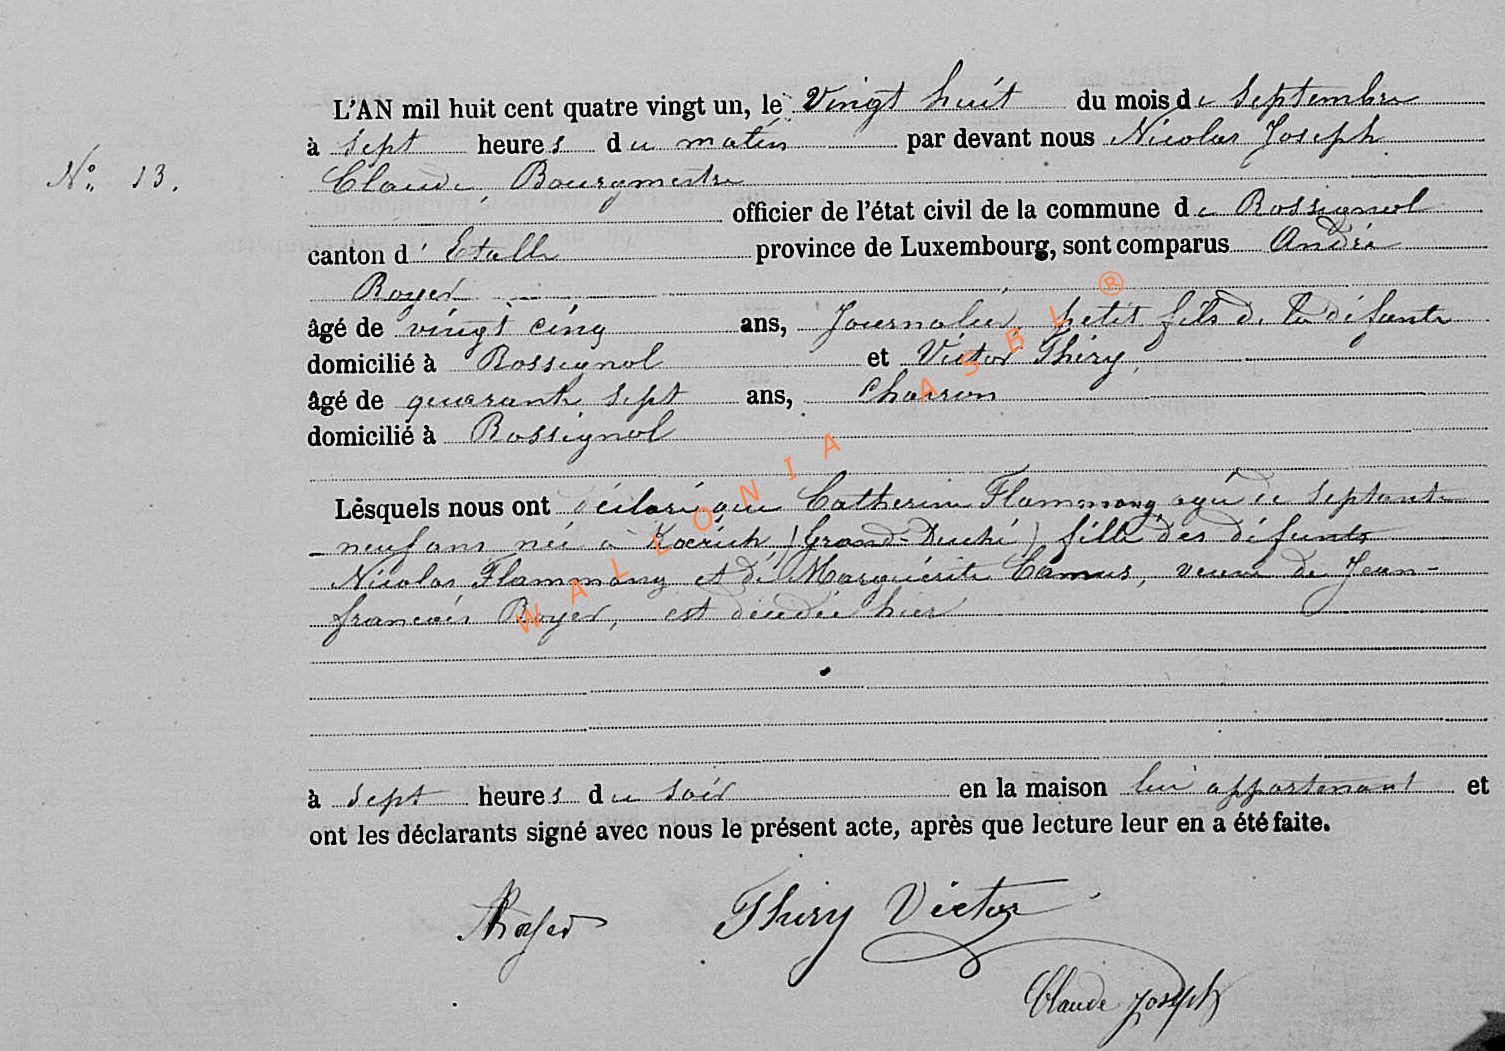 L'AN mil huit cent quatre vingt un, le Vingt huit du mois de Septembre
à sept heures du matin par devant nous Nicolas Joseph
N° 13.
Claude, Bourgmestre
officier de l'état civil de la commune de Rossignol
canton d'Etalle province de Luxembourg, sont comparus André
Royer
âgé de vingt cinq ans, Journalier, petit fils de la défunte
domicilié à Rossignol et Victor Thiry,
âgé de quarante sept ans, Charron
domicilié à Rossignol
Lesquels nous ont déclaré que Catherine Flammang, agée de septante
neuf ans née à Koerich (Grand-Duché) fille des défunts
Nicolas Flammang et de Marguérite Camus, veuve de Jean-
françois Royer, est décédée hier
à sept heures du soir en la maison lui appartenant et
ont les déclarants signé avec nous le présent acte, après que lecture leur en a été faite.
ARoyer Thiry Victor
Claude Joseph
WALLONIA ASBL ®